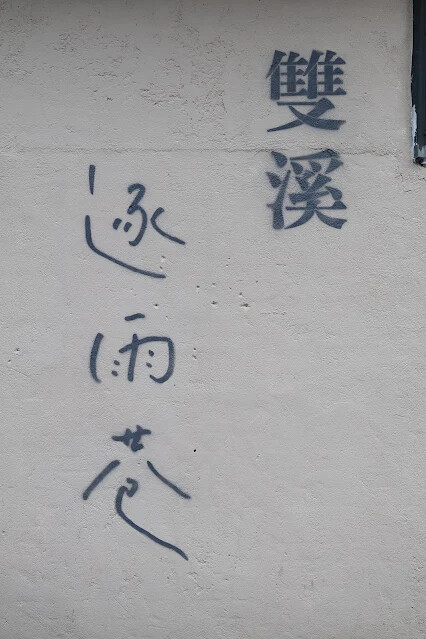 雙溪
逐雨巷